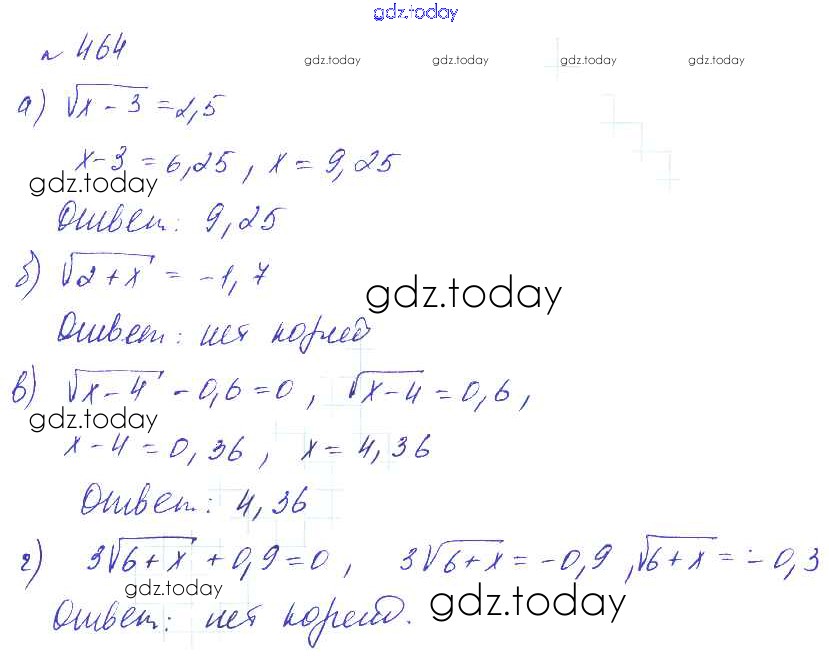 gdz.today
№ 464
gdz.today gdz.today gdz.today gdz.today
а) √x − 3 = 2,5
x − 3 = 6,25 , x = 9,25
gdz.today
Ответ: 9,25
б) √2 + x = −1,7
gdz.today
Ответ: нет корней
в) √x − 4 − 0,6 = 0 , √x − 4 = 0,6 ,
gdz.today
x − 4 = 0,36 , x = 4,36
Ответ: 4,36
г) 3√6 + x + 0,9 = 0 , 3√6 + x = −0,9 , √6 + x = −0,3
gdz.today gdz.today
Ответ: нет корней.